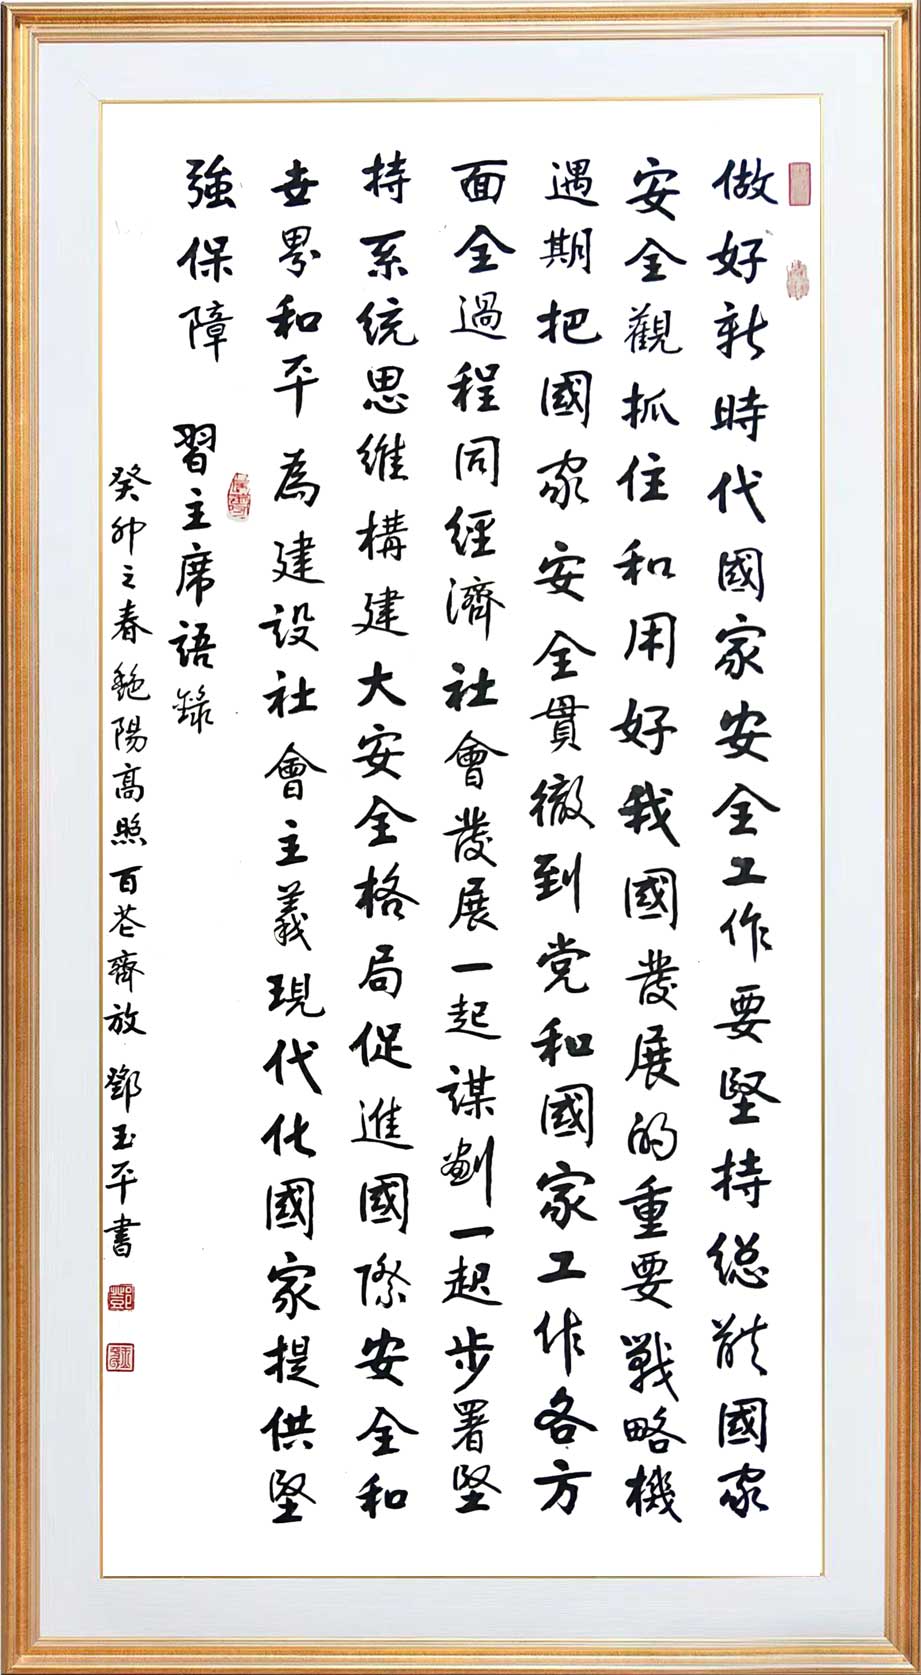 做好新時代國家安全工作要堅持總體國家
安全觀抓住和用好我國發展的重要戰略機
遇期把國家安全貫徹到党和國家工作各方
面全過程同經濟社會發展一起謀劃一起步署堅
持系統思維構建大安全格局促進國際安全和
世界和平為建設社會主義現代化國家提供堅
強保障 習主席語錄
癸卯之春艷陽高照百花齊放 鄧玉平書